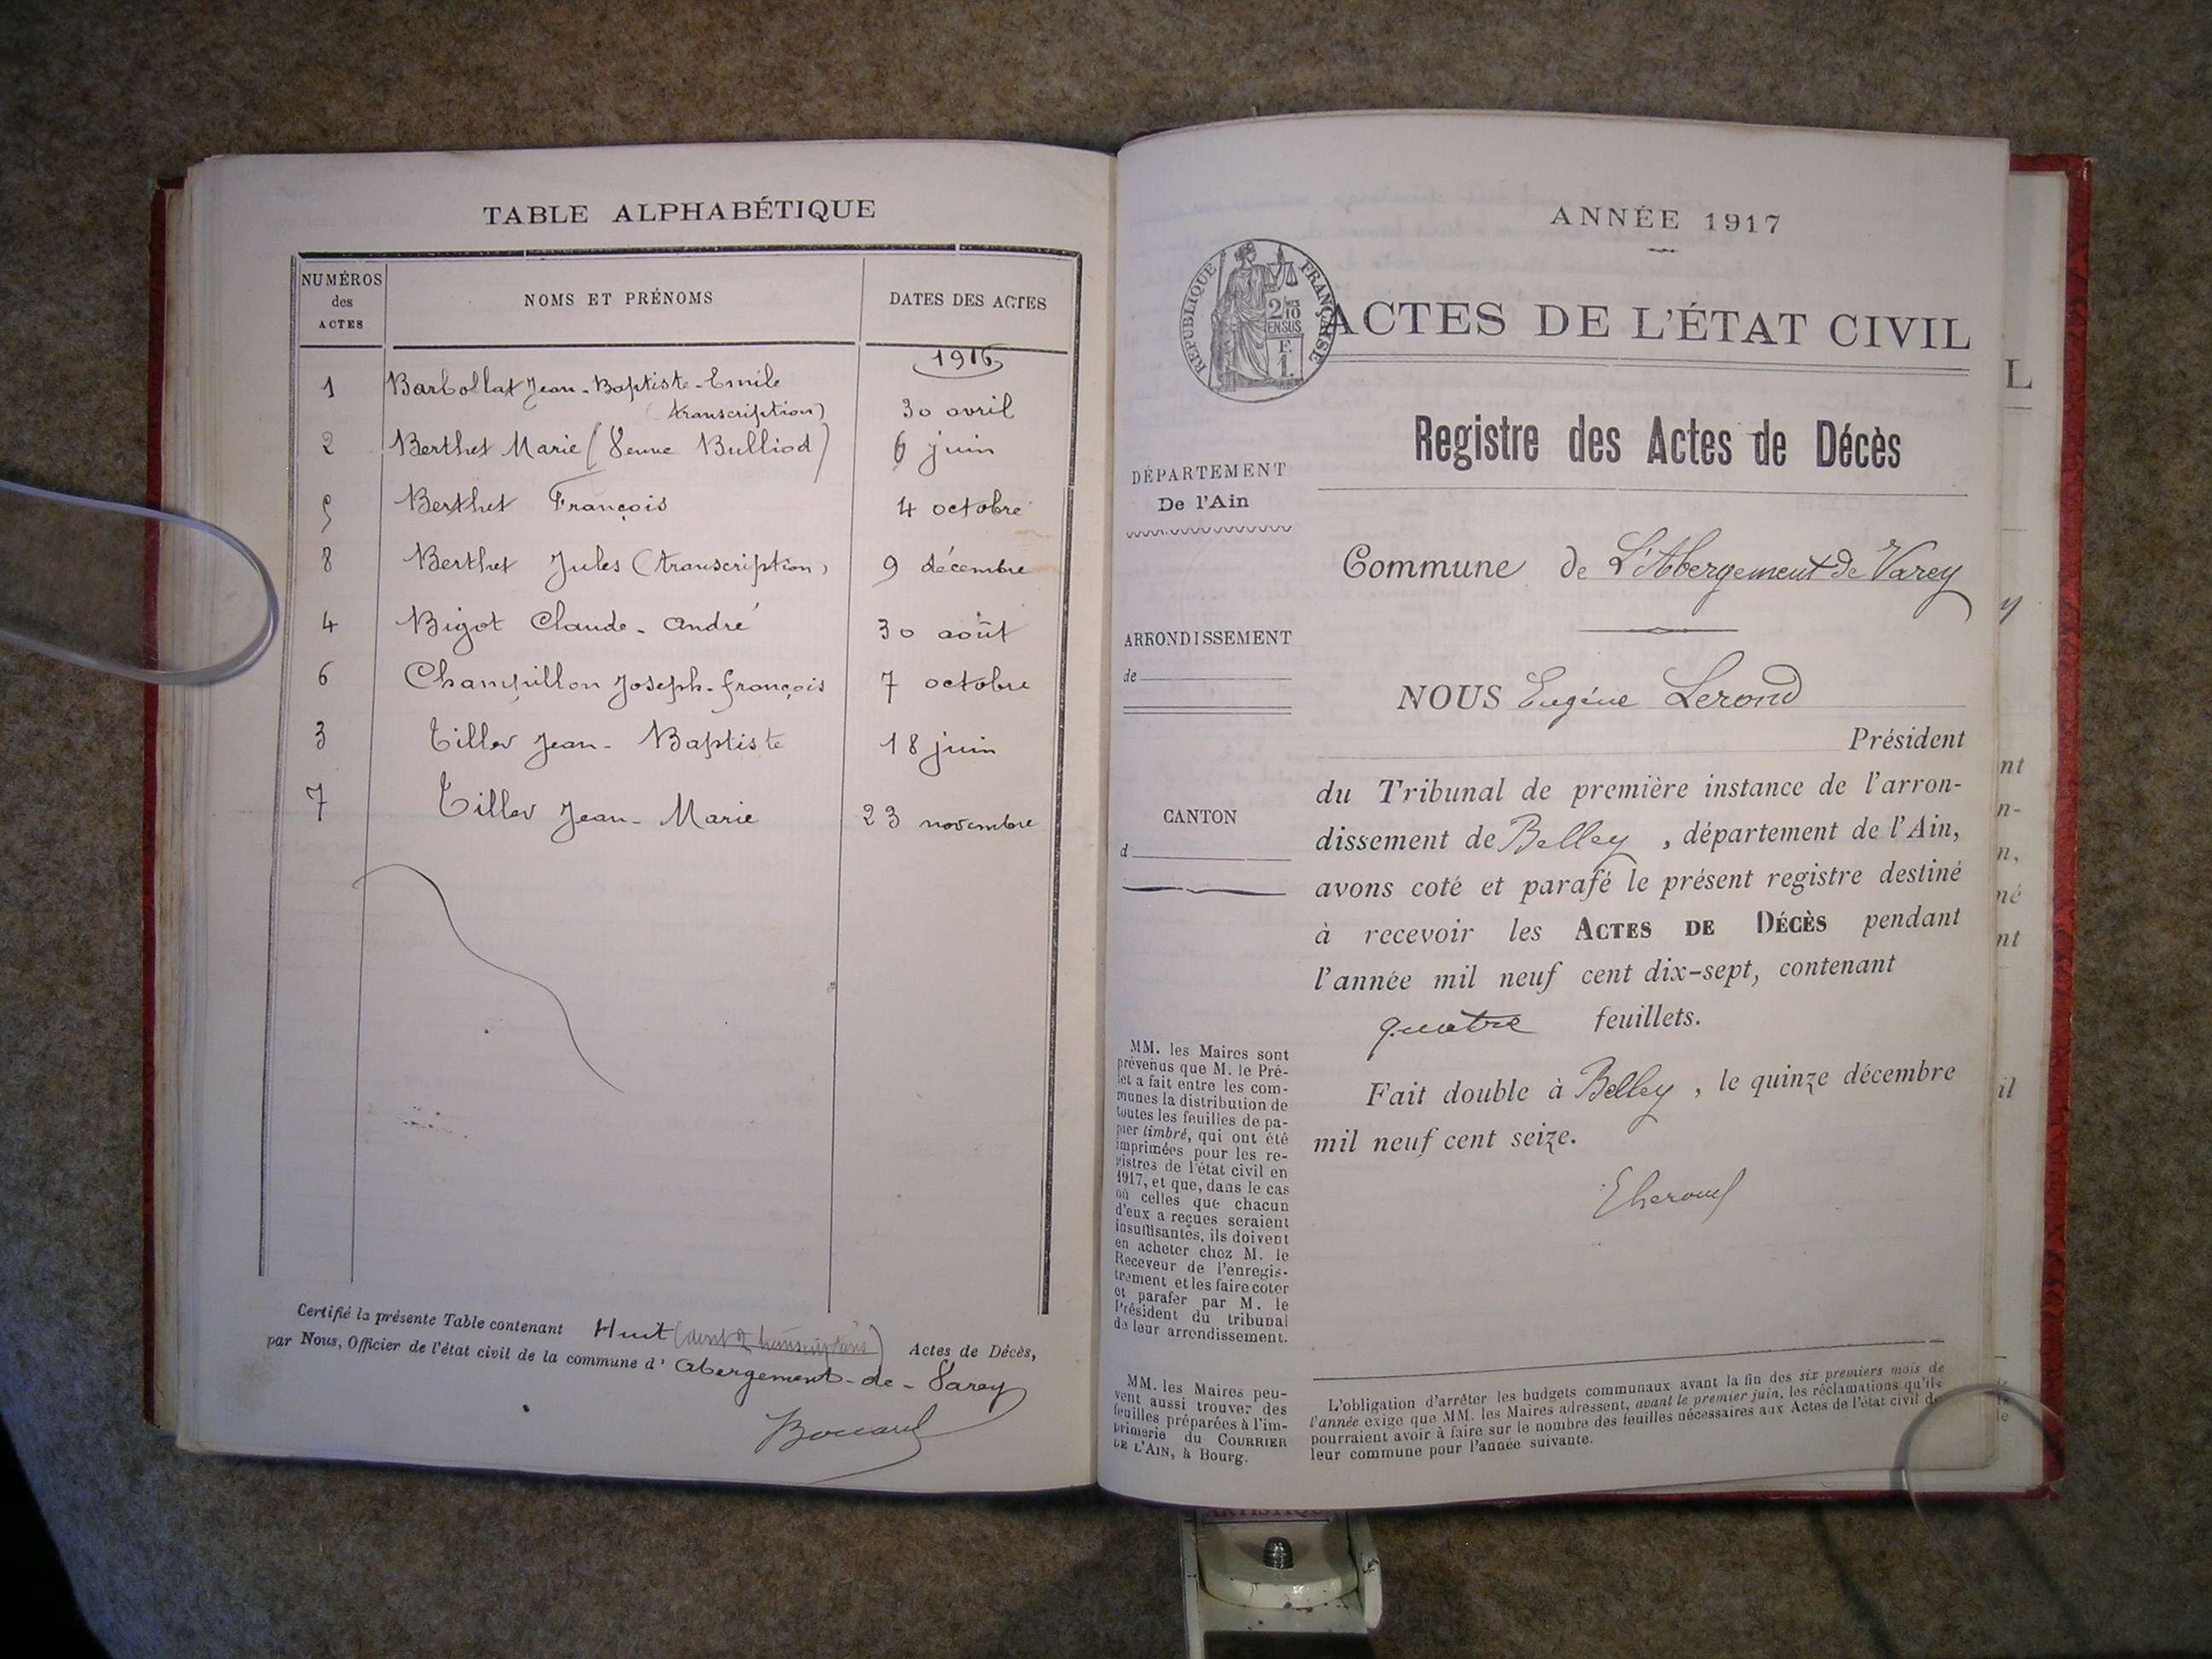 TABLE ALPHABÉTIQUE
NUMÉROS des ACTES NOMS ET PRÉNOMS DATES DES ACTES
1916
1 Barbollat Jean-Baptiste-Emile
(transcription) 30 avril
2 Berthet Marie (Veuve Bulliod) 6 juin
5 Berthet François 4 octobre
8 Berthet Jules (transcription) 9 décembre
4 Bigot Claude-André 30 août
6 Champillon Joseph-françois 7 octobre
3 Tiller Jean-Baptiste 18 juin
7 Tiller Jean-Marie 23 novembre
Certifié la présente Table contenant Huit (dont 2 transcriptions) Actes de Décès,
par Nous, Officier de l'état civil de la commune d' Abergement-de-Varey
ANNÉE 1917
RÉPUBLIQUE FRANÇAISE
2/10
EN SUS
F.
1.
ACTES DE L'ÉTAT CIVIL
Registre des Actes de Décès
DÉPARTEMENT
De l'Ain
Commune de L'Abergement de Varey
ARRONDISSEMENT
de
NOUS Eugéne Lerond
Président
du Tribunal de première instance de l'arron-
dissement de Belley, département de l'Ain,
avons coté et parafé le présent registre destiné
à recevoir les ACTES DE DÉCÈS pendant
l'année mil neuf cent dix-sept, contenant
quatre feuillets.
Fait double à Belley, le quinze décembre
mil neuf cent seize.
CANTON
d
MM. les Maires sont
prévenus que M. le Pré-
fet a fait entre les com-
munes la distribution de
toutes les feuilles de pa-
pier timbré, qui ont été
imprimées pour les re-
gistres de l'état civil en
1917, et que, dans le cas
où celles que chacun
d'eux a reçues seraient
insuffisantes, ils doivent
en acheter chez M. le
Receveur de l'enregis-
trement et les faire coter
et parafer par M. le
Président du tribunal
de leur arrondissement.
MM. les Maires peu-
vent aussi trouver des
feuilles préparées à l'im-
primerie du COURRIER
DE L'AIN, à Bourg.
L'obligation d'arrêter les budgets communaux avant la fin des six premiers mois de
l'année exige que MM. les Maires adressent, avant le premier juin, les réclamations qu'ils
pourraient avoir à faire sur le nombre des feuilles nécessaires aux Actes de l'état civil de
leur commune pour l'année suivante.